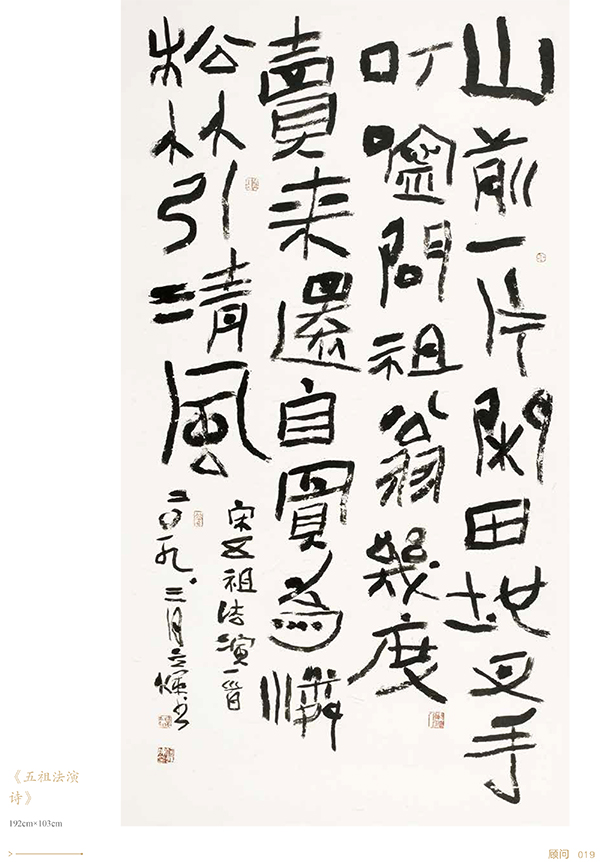 山前一片閑田地叉手
叮嚀問祖翁幾度
賣来還自買為憐
松林引清風
宋五祖法演一首
二〇一九.三月
《五祖法演
诗》
192cm×103cm
顾问 019